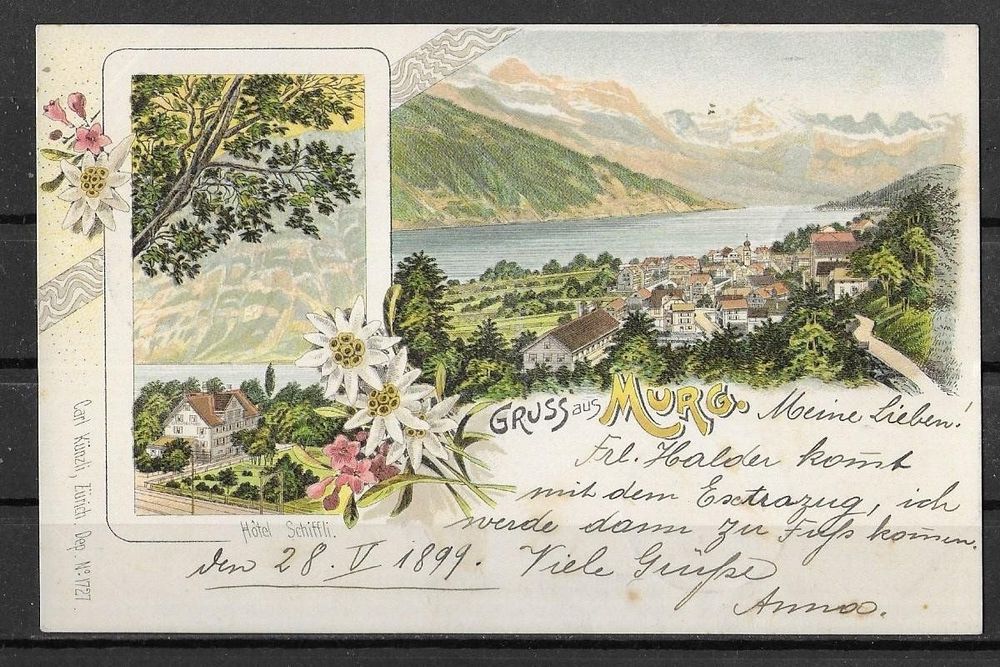 GRUSS aus MURG.
Meine Lieben!
Frl. Halder kom̄t
mit dem Extrazug, ich
werde dann zu Fuß kom̄en.
Viele Grüße
Anna.
den 28. V 1899.
Hôtel Schiffli.
Carl Künzli, Zürich. Dep. No 1727.